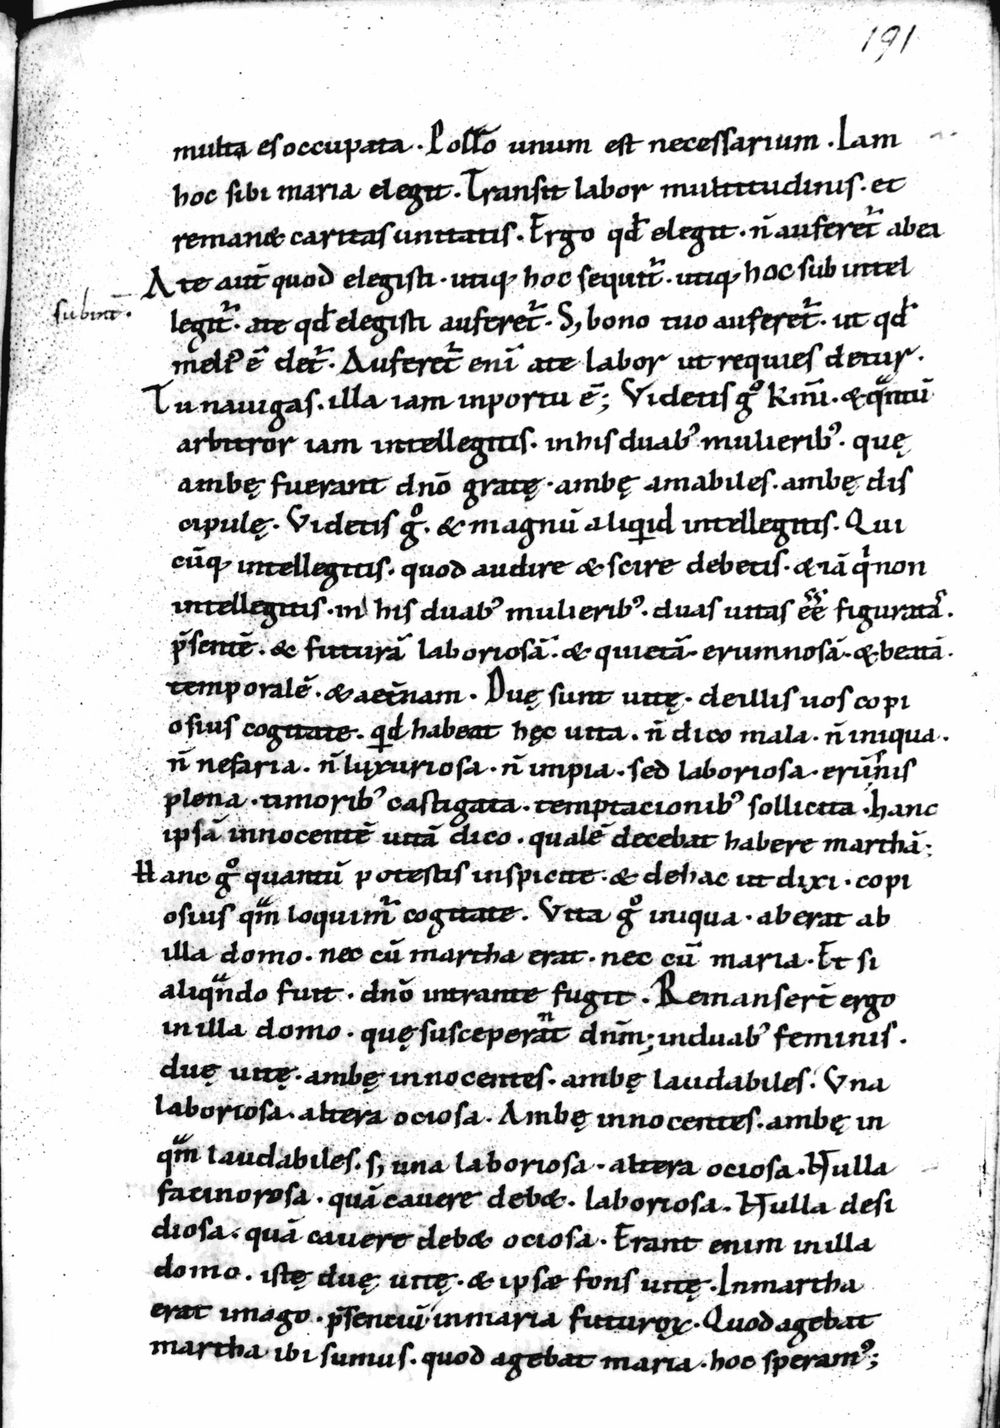 191
multa es occupata · Porro unum est necessarium · Iam
hoc sibi maria elegit · Transit labor multitudinis · et
remanet caritas unitatis · Ergo qđ elegit · n̄ auferet᷑ ab ea
A te aut̄ quod elegisti · utiqꝫ hoc sequit᷑ · utiqꝫ hoc subintel
subint̄ ·
legit᷑ · a te qđ elegisti auferet᷑ · S; bono tuo auferet᷑ · ut qđ
meli᷒ ē det᷑ · Auferet᷑ eni̅ a te labor ut requies detur ·
Tu nauigas · illa iam in portu ē; Videtis gͦ kmi̅ · & qͣntū
arbitror iam intellegitis · in his duab᷒ mulierib᷒ · quę
ambę fuerant dnō gratę · ambę amabiles · ambę dis
cipulę · Videtis gͦ · & magnū aliquid intellegitis · Qui
cūqꝫ intellegitis · quod audire & scire debetis · & iā qͥ non
intellegitis · in his duab᷒ mulierib᷒ · duas uitas eē figuratas ·
p̄sentē · & futurā laboriosā · & quietā · erumnosā · & beatā ·
temporalē · & aet̄nam · Duę sunt uitę · de illis uos copi
osius cogitate · qđ habeat hęc uita · n̄ dico mala · n̄ iniqua ·
n̄ nefaria · n̄ luxuriosa · n̄ impia · sed laboriosa · erūnis
plena · timorib᷒ castigata · temptacionib᷒ sollicita · hanc
ipsā innocentē uitā dico · qualē decebat habere marthā;
Hanc gͦ quantū potestis inspicite · & de hac ut dixi · copi
osius qͣm loquim᷑ cogitate · Vita gͦ iniqua · aberat ab
illa domo · nec cū martha erat · nec cū maria · Et si
aliqͣndo fuit · dnō intrante fugit · Remanser̄t ergo
in illa domo · quę susceperant dn̄m; in duab᷒ feminis ·
duę uitę · ambę innocentes · ambę laudabiles · Vna
laboriosa · altera ociosa · Ambę innocentes · ambę in
qͣm laudabiles · s; una laboriosa · altera ociosa · Nulla
facinorosa · quā cauere debet · laboriosa · Nulla desi
diosa · quā cauere debet ociosa · Erant enim in illa
domo · istę duę uitę · & ipsæ fons uitę · In martha
erat imago · p̄sentiū in maria futuroꝝ · Quod agebat
martha ibi sumus · quod agebat maria · hoc speram᷒;